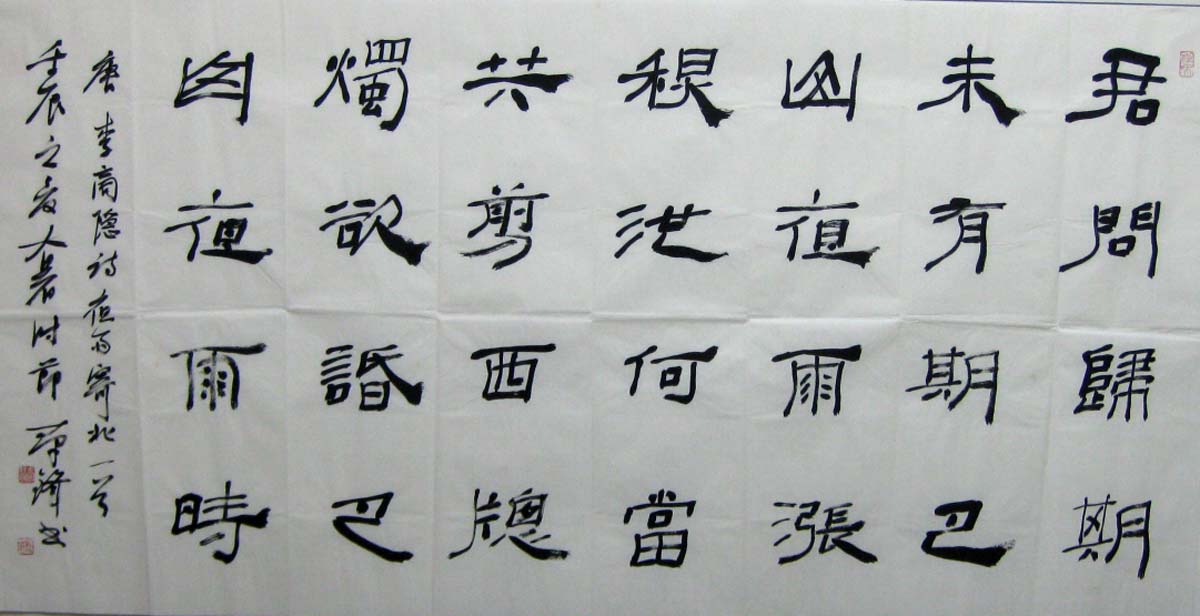 君問歸期
未有期巴
山夜雨漲
秋池何當
共剪西牕
燭卻話巴
山夜雨時
唐 李商隐诗夜雨寄北一首
壬辰之夏大暑时节 锋书